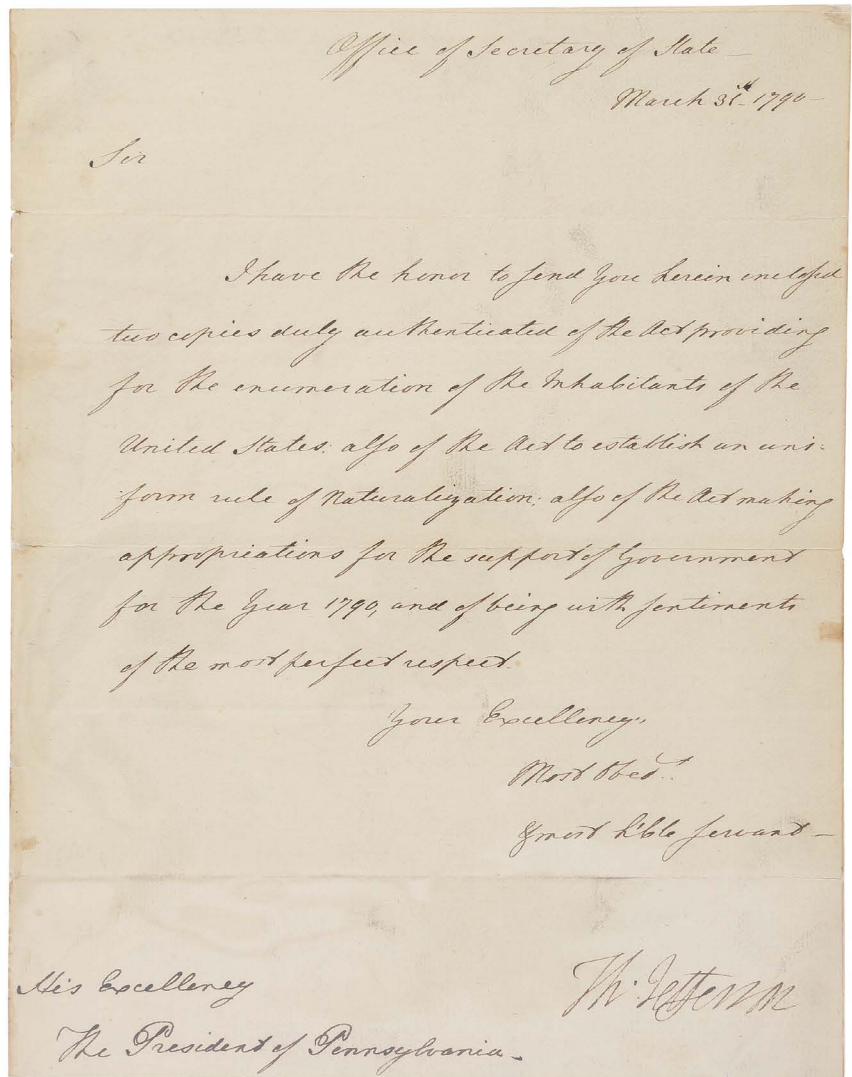 Office of Secretary of State
March 31st 1790
Sir
I have the honor to send you herein enclosed
two copies duly authenticated of the Act providing
for the enumeration of the Inhabitants of the
United States: also of the Act to establish an uni-
form rule of Naturalization: also of the Act making
appropriations for the support of Government
for the Year 1790, and of being with sentiments
of the most perfect respect.
Your Excellency,
Most Obed.t
& most h'ble servant
Th: Jefferson
His Excellency
The President of Pennsylvania